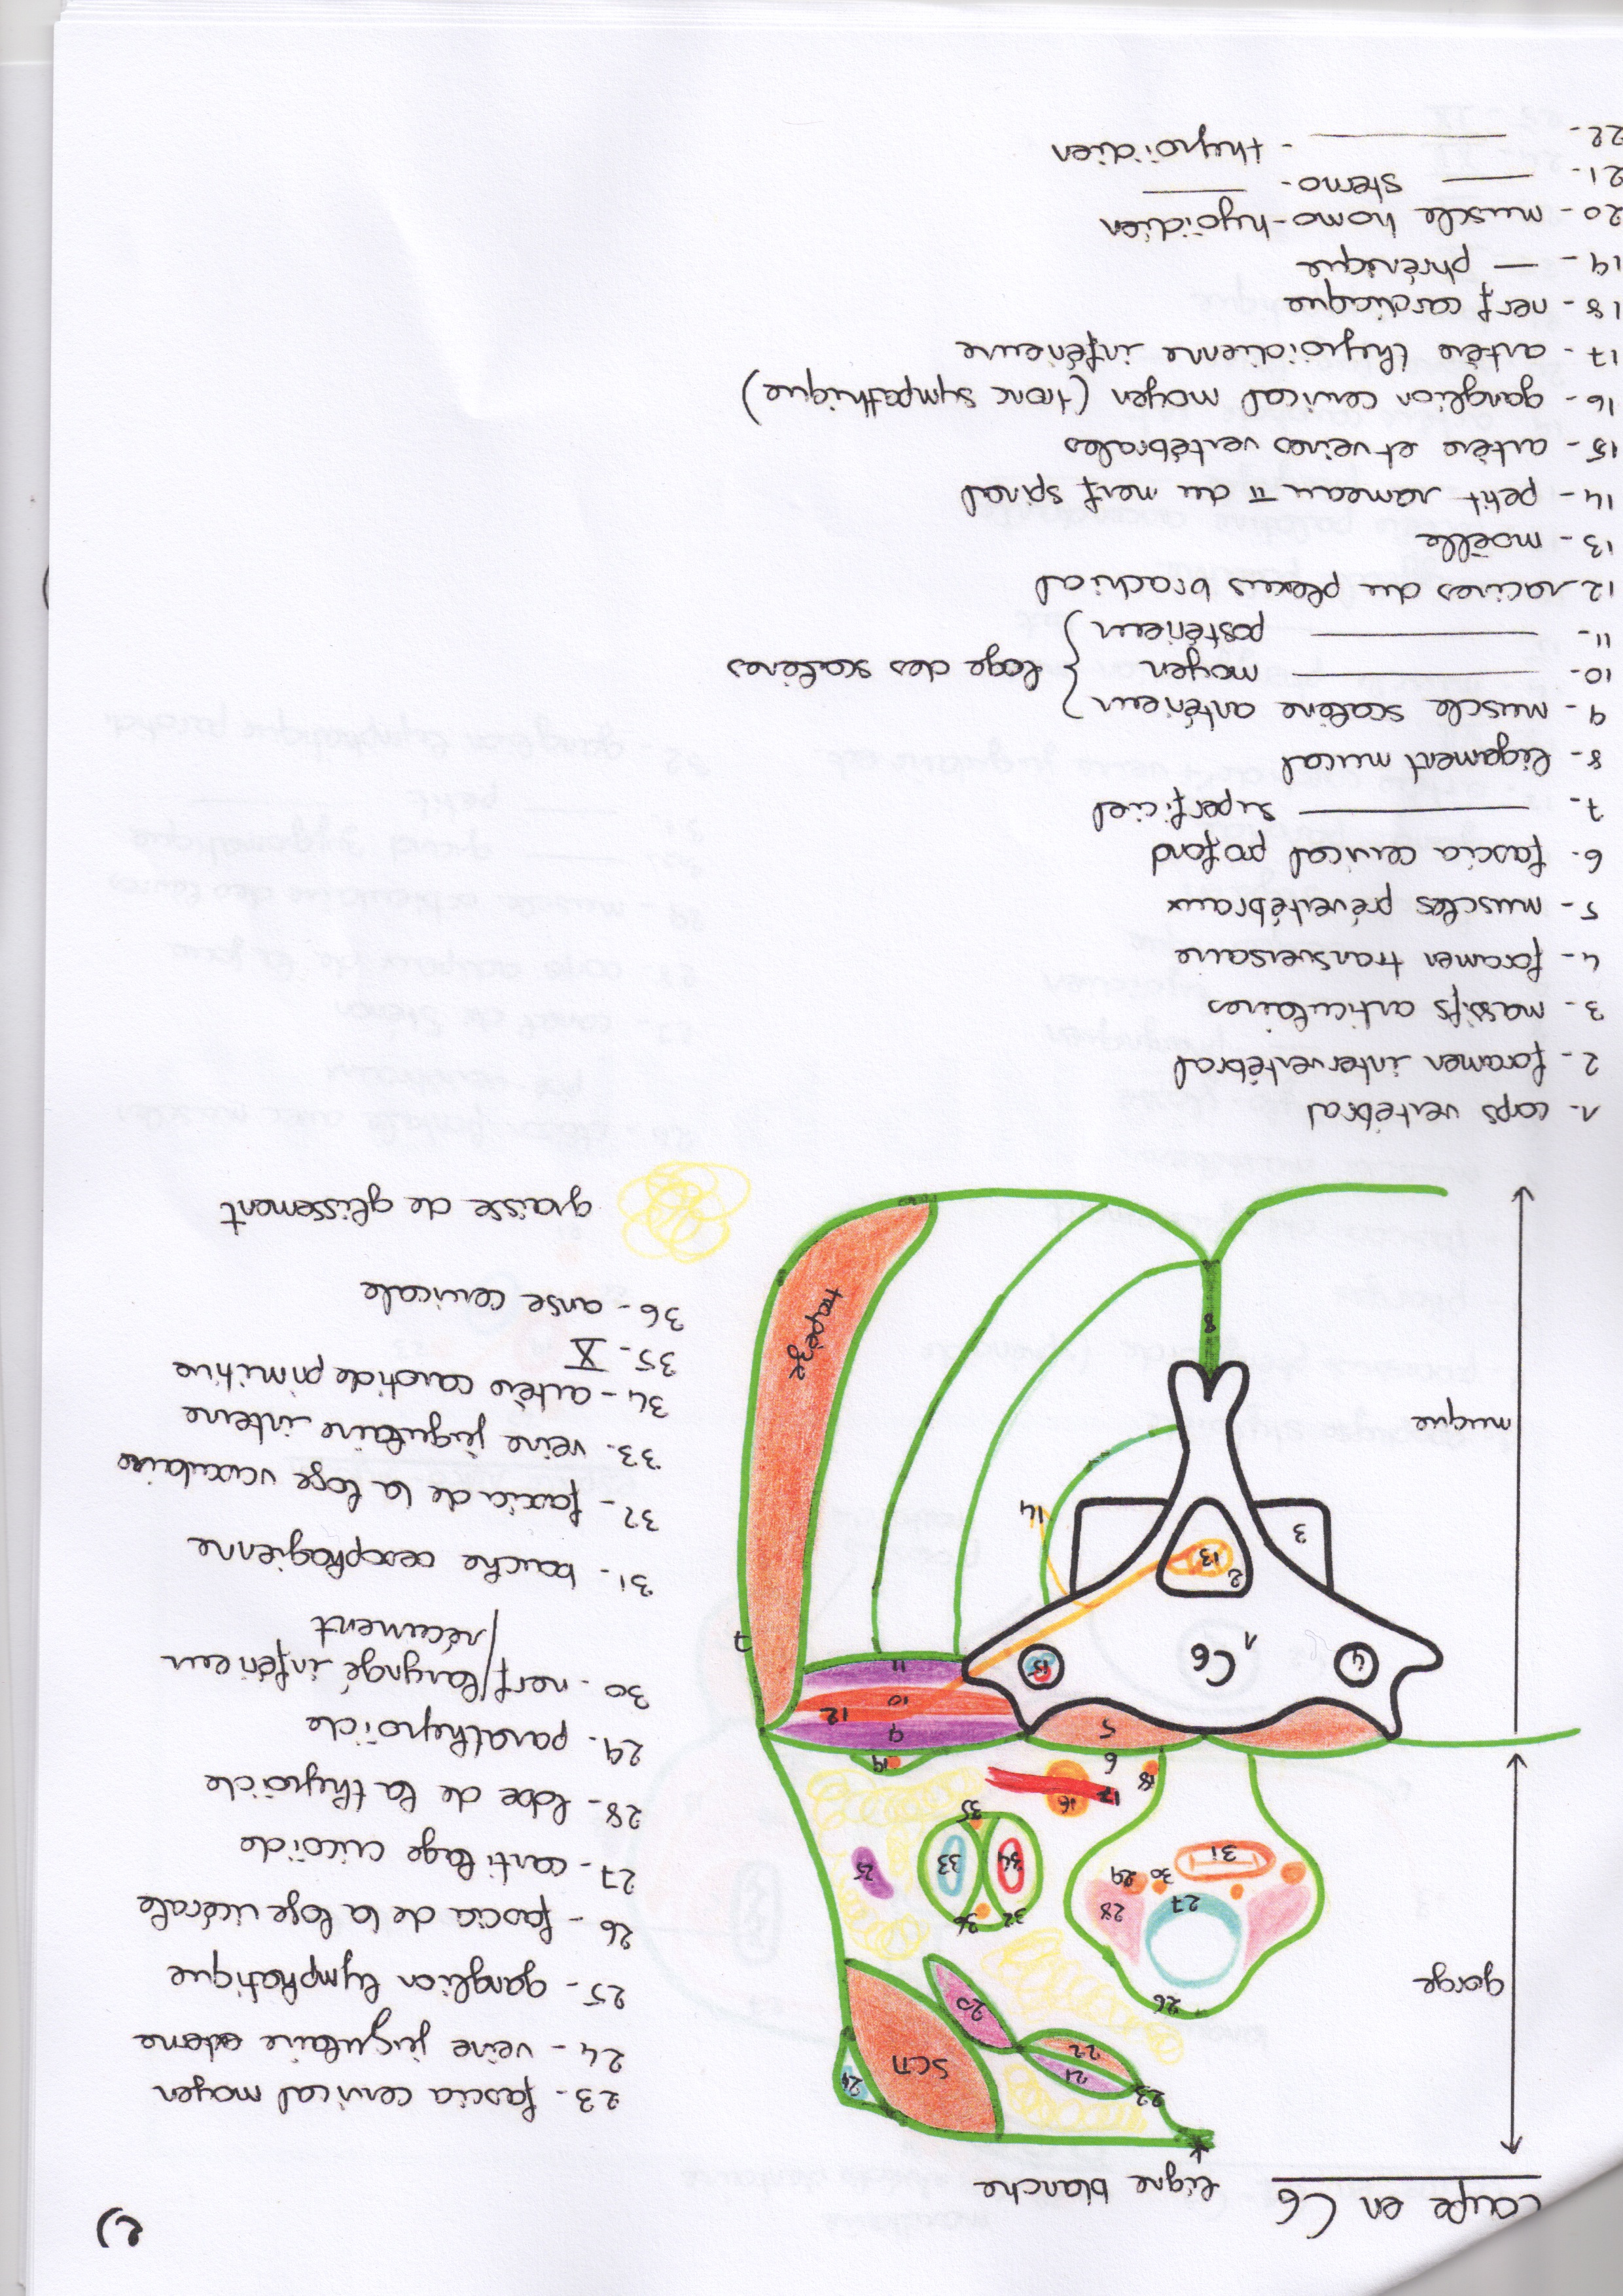 2)
coupe en C6
ligne blanche
gorge
nuque
SCM
trapèze
C6
1
2
3
4
5
6
7
8
9
10
11
12
13
14
15
16
17
18
19
20
21
22
23
24
25
26
27
28
29
30
31
32
33
34
35
36
23- fascia cervical moyen
24- veine jugulaire externe
25- ganglion lymphatique
26- fascia de la loge viscérale
27- cartilage cricoïde
28- lobe de la thyroïde
29- parathyroïde
30- nerf laryngé inférieur
/récurrent
31- bouche oesophagienne
32- fascia de la loge vasculaire
33- veine jugulaire interne
34- artère carotide primitive
35- X
36- anse cervicale
graisse de glissement
1- corps vertébral
2- foramen intervertébral
3- massifs articulaires
4- foramen transversaire
5- muscles prévertébraux
6- fascia cervical profond
7- superficiel
8- ligament nucal
9- muscle scalène antérieur
10- moyen } loge des scalènes
11- postérieur
12- racines du plexus brachial
13- moëlle
14- petit rameau π du nerf spinal
15- artère et veines vertébrales
16- ganglion cervical moyen (tronc sympathique)
17- artère thyroïdienne inférieure
18- nerf cardiaque
19- phrénique
20- muscle homo-hyoïdien
21- sterno-
22- - thyroïdien